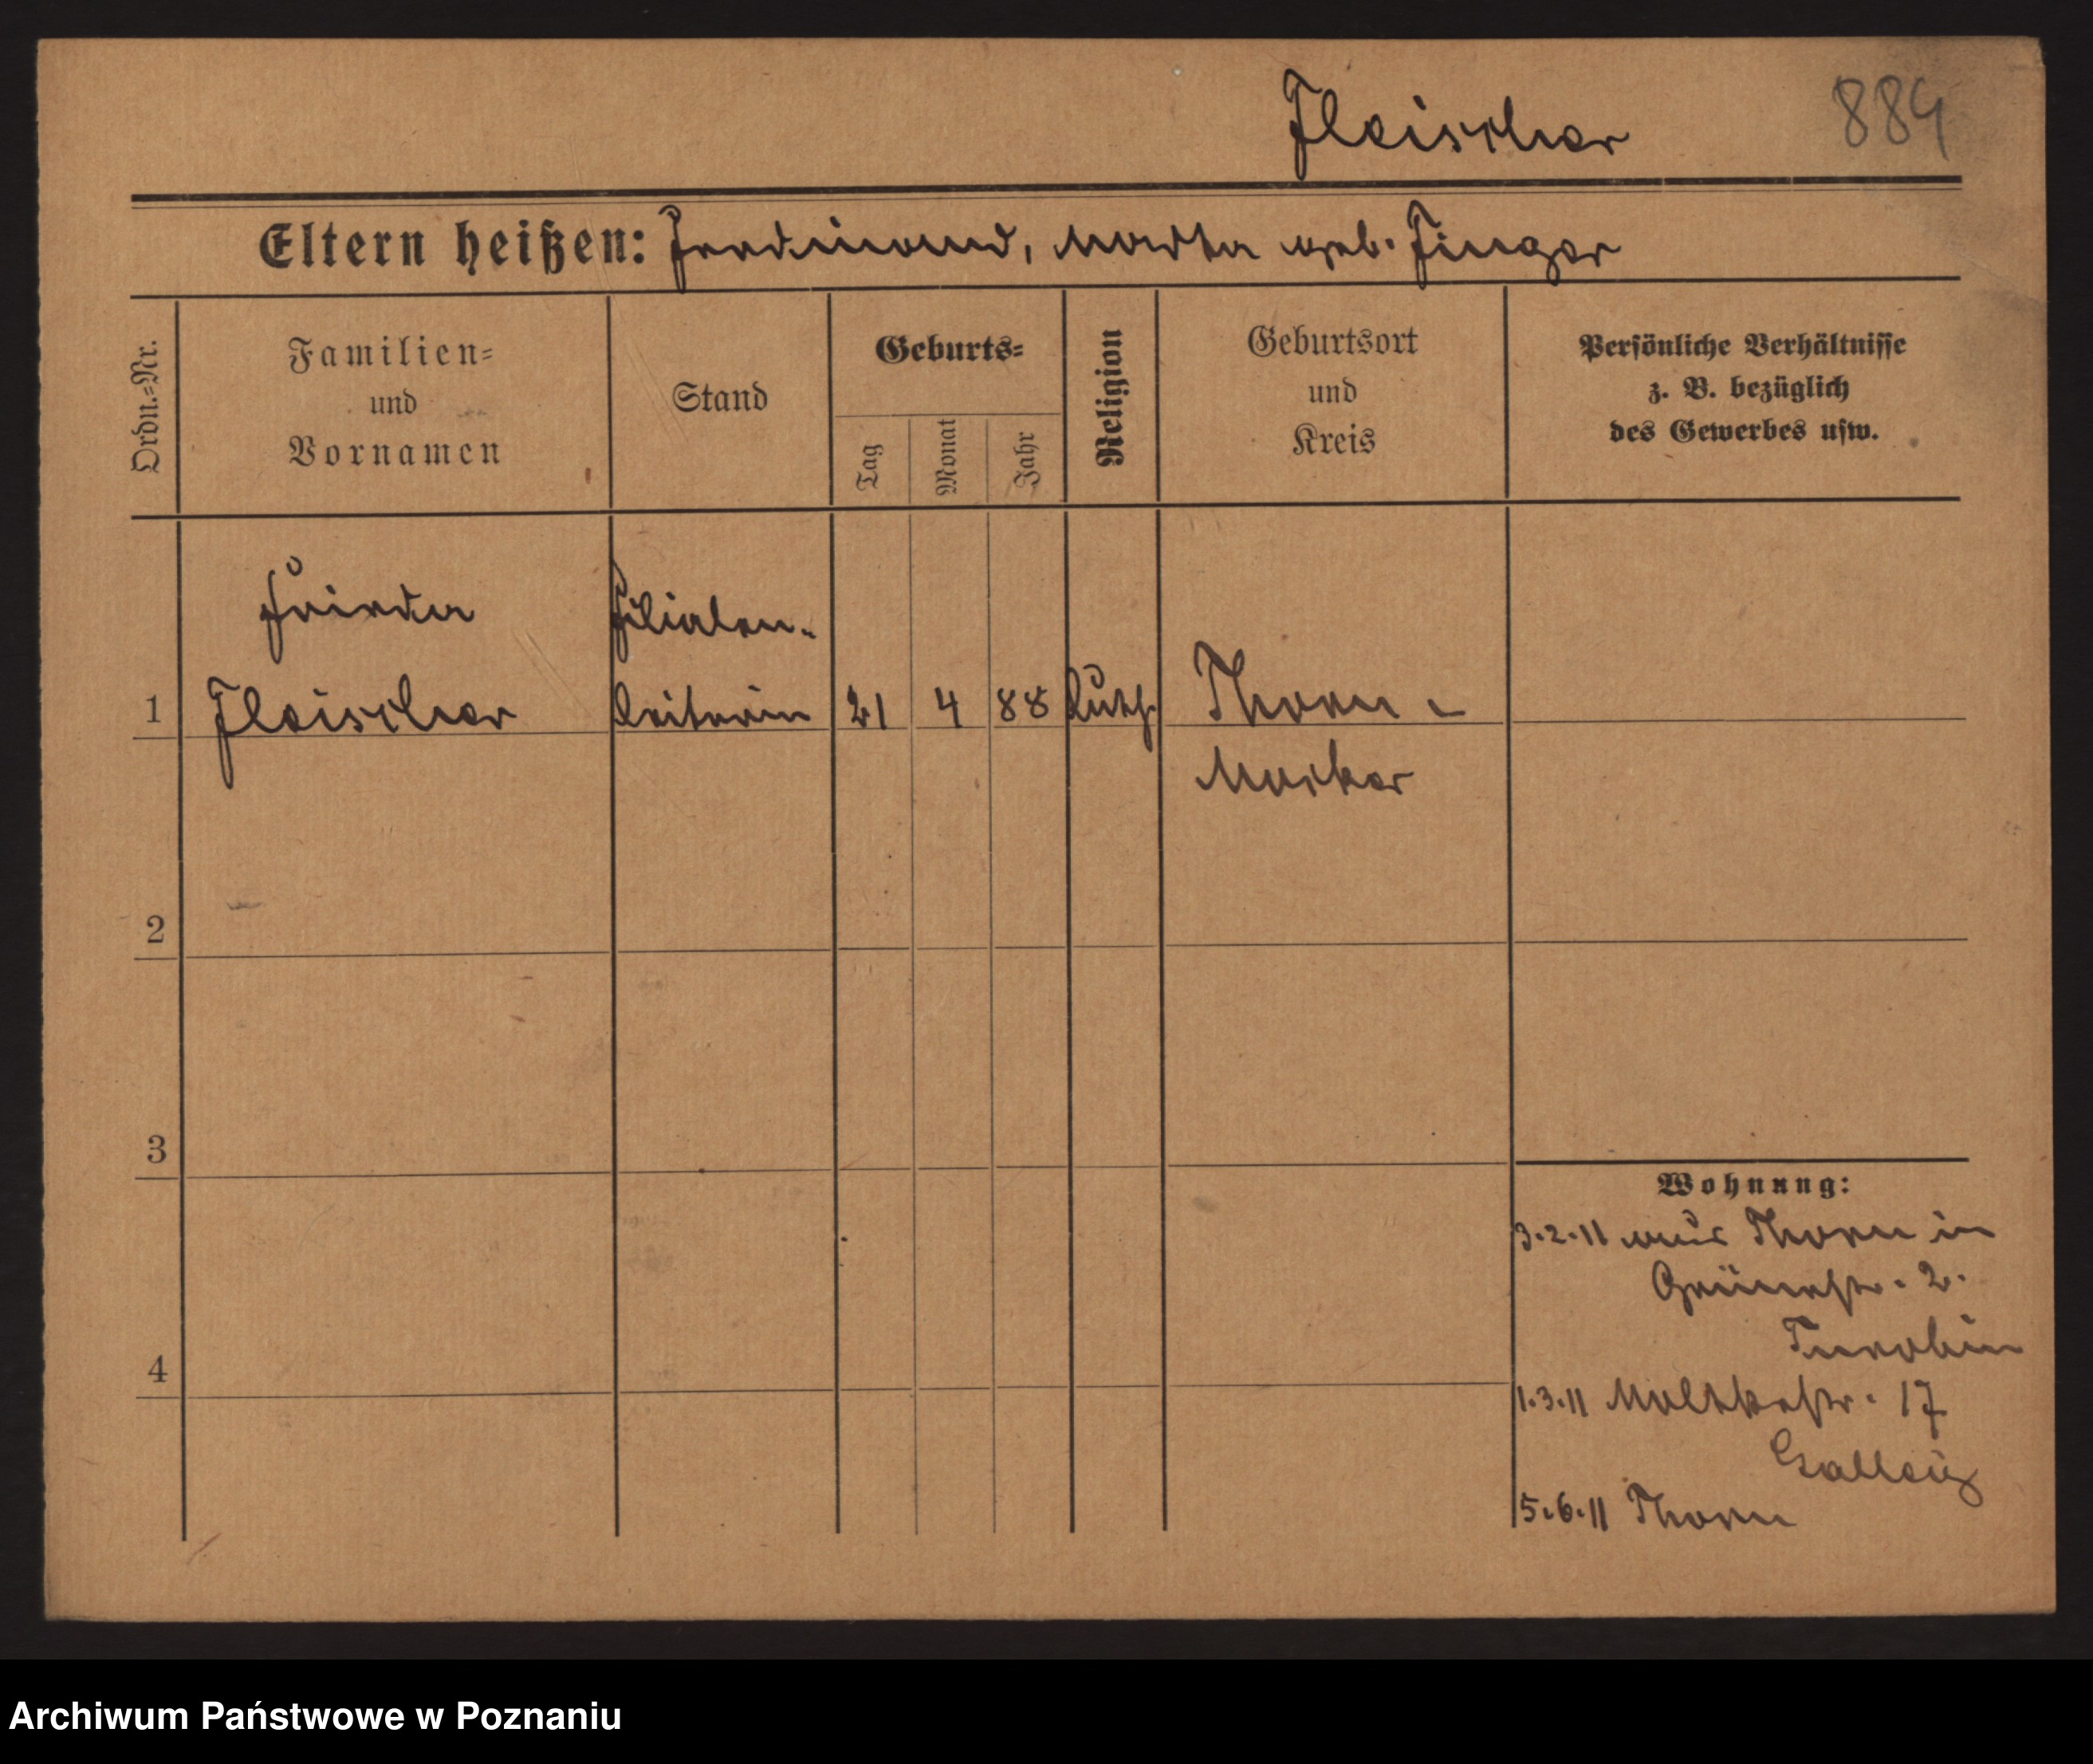 Fleischer 884
Eltern heißen: Ferdinand, Martha geb. Finger
Ordn.=Nr.
Familien=
und
Vornamen
Stand
Geburts=
Tag
Monat
Jahr
Religion
Geburtsort
und
Kreis
Persönliche Verhältnisse
z. B. bezüglich
des Gewerbes usw.
Frieda Filialen-
1 Fleischer leiterin 21 4 88 luth. Thorn -
Mocker
2
3
4
Wohnung:
3.2.11 aus Thorn in
Grünestr. 2.
1.3.11 Moltkestr. 17
5.6.11 Thorn
Archiwum Państwowe w Poznaniu